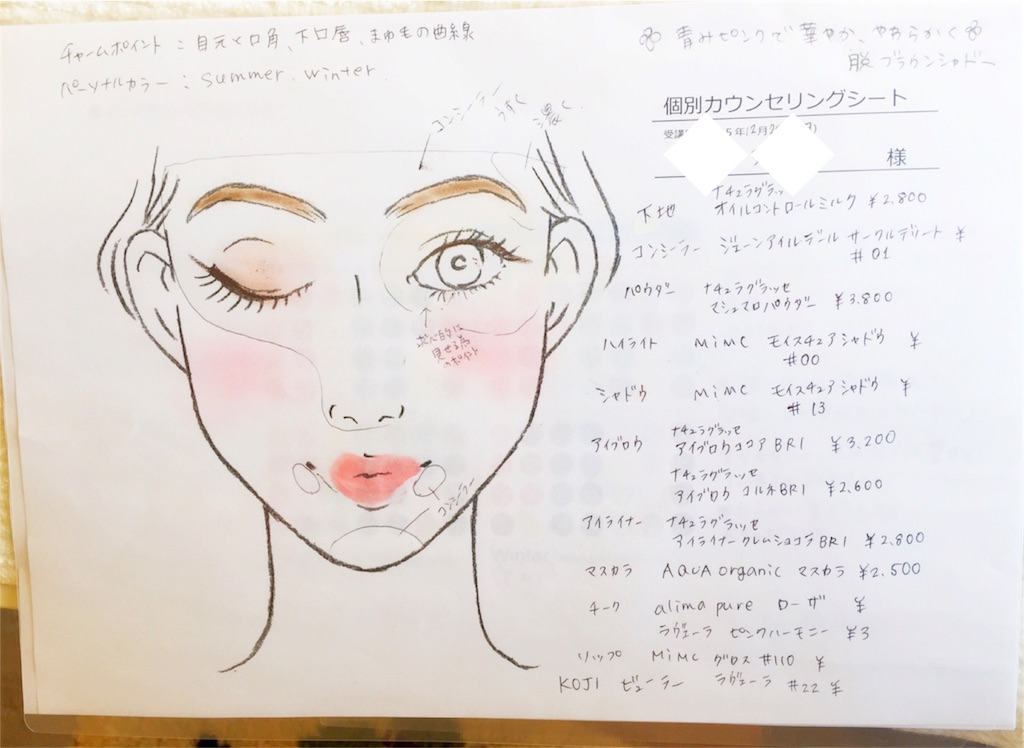 チャームポイント：目元と口角、下口唇、まゆ毛の曲線
パーソナルカラー：summer. winter.
青みピンクで華やか、やわらかく
脱ブラウンシャドー
個別カウンセリングシート
5年12月
様
コンシーラー
うすく
濃く
下地 ナチュラグラッセ
オイルコントロールミルク ¥2,800
コンシーラー ジェーンアイルデール サークルデリート ¥
#01
パウダー ナチュラグラッセ
マシュマロパウダー ¥3.800
ハイライト MiMC モイスチュアシャドウ ¥
#00
シャドウ MiMC モイスチュアシャドウ ¥
#13
アイブロウ ナチュラグラッセ
アイブロウココア BR1 ¥3,200
ナチュラグラッセ
アイブロウ コルネBR1 ¥2,600
アイライナー ナチュラグラッセ
アイライナークレムショコラBR1 ¥2.800
マスカラ AQUA organic マスカラ ¥2.500
チーク alima pure ローザ ¥
ラヴェーラ ピンクハーモニー ¥3
リップ MiMC グロス #110 ¥
KOJI ビューラー ラヴェーラ #22 ¥
見せる為
コンシーラー
Winter